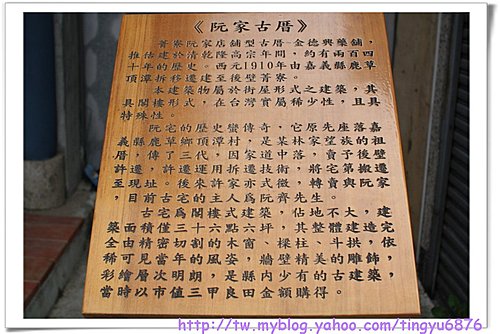 《阮家古厝》
菁寮阮家店舖型古厝-金德興藥舖，
推估建於清乾隆高宗年間，約有兩百四
十年的歷史。西元1910年由嘉義縣鹿草
頂潭拆移遷建至後壁菁寮。
本建築物屬於街屋形式之建築，其
具閣樓形式，在台灣實屬稀少性，且具
特殊性。
阮宅的歷史蠻傳奇，它原先座落嘉
義縣鹿草鄉頂潭村，是某林家望族的祖
厝，傳了三代，因家道中落，賣予後壁
許姓，後來許家亦式微，轉賣與阮家
至，現目前主人為阮齊先生。
古宅為閣樓式建築，佔地不大，建
築面積僅三十六點六坪，整體建造完
全由精密切割的木窗、樑柱、斗拱，依
稀可見當年的風姿，牆內精美的雕飾、
彩繪層次明朗，是其至少的古建築，
當時以市值三甲良田金額購得。
http://tw.myblog.yahoo.com/tingyu6876